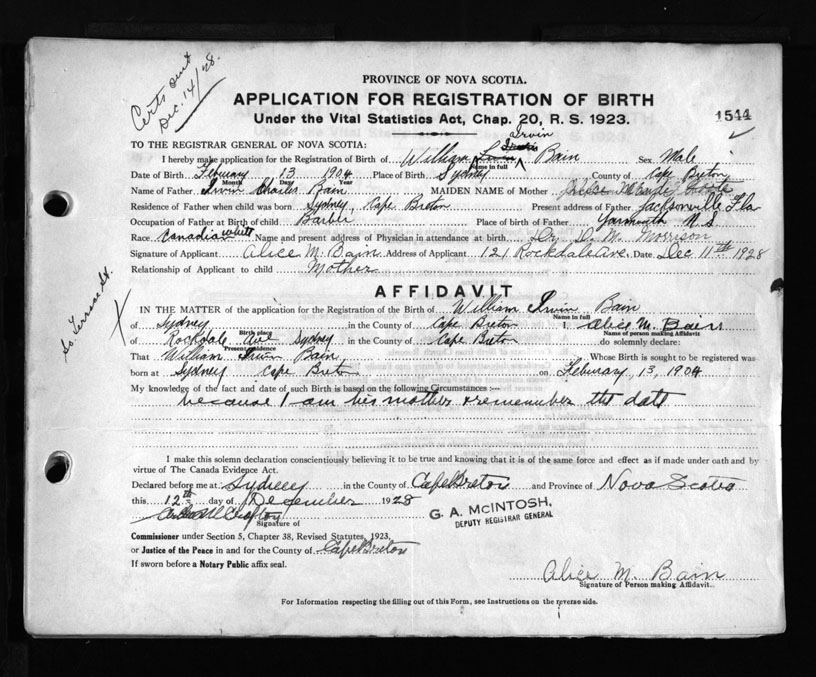 Certs sent
Dec. 14/28.
PROVINCE OF NOVA SCOTIA.
APPLICATION FOR REGISTRATION OF BIRTH
Under the Vital Statistics Act, Chap. 20, R. S. 1923.
1544
TO THE REGISTRAR GENERAL OF NOVA SCOTIA:
Irvin
I hereby make application for the Registration of Birth of William Bain Sex Male
Name in full
Date of Birth Feburary 13 1904 Place of Birth Sydney County of Cape Breton
Month Day Year
Name of Father Charles Bain MAIDEN NAME of Mother
Residence of Father when child was born Sydney, Cape Breton Present address of Father Jacksonville Fla
Occupation of Father at Birth of child Barber Place of birth of Father Yarmouth N S
Race Canadian Name and present address of Physician in attendance at birth Dr. D. M. Morrison
Signature of Applicant Alice M. Bain Address of Applicant 121 Rockdale Ave, Date Dec 11th 1928
Relationship of Applicant to child Mother
AFFIDAVIT
IN THE MATTER of the application for the Registration of the Birth of William Irvin Bain
Name in full
of Sydney in the County of Cape Breton I, Alice M. Bain
Birth place Name of person making Affidavit
of Rockdale Ave Sydney in the County of Cape Breton do solemnly declare:
Present residence
That William Irwin Bain, Whose Birth is sought to be registered was
born at Sydney Cape Breton on Feburary, 13, 1904
My knowledge of the fact and date of such Birth is based on the following Circumstances :—
because I am his mother & remember the date
I make this solemn declaration conscientiously believing it to be true and knowing that it is of the same force and effect as if made under oath and by
virtue of The Canada Evidence Act.
Declared before me at Sydney in the County of Cape Breton and Province of Nova Scotia
this 12th day of December 1928
G. A. McINTOSH,
DEPUTY REGISTRAR GENERAL
Signature of
Commissioner under Section 5, Chapter 38, Revised Statutes, 1923,
or Justice of the Peace in and for the County of Cape Breton
If sworn before a Notary Public affix seal.
Alice M. Bain
Signature of Person making Affidavit.
For Information respecting the filling out of this Form, see Instructions on the reverse side.